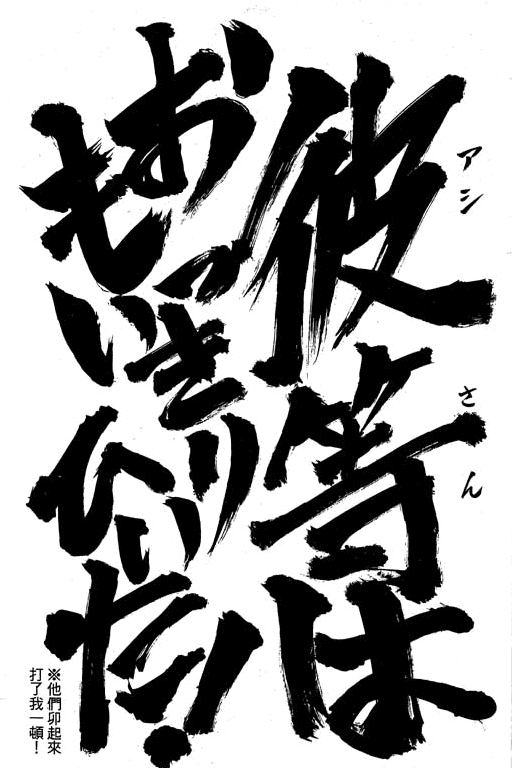 アシさん
彼等は
おもいっきりひいた!
※他們卯起來
打了我一頓!